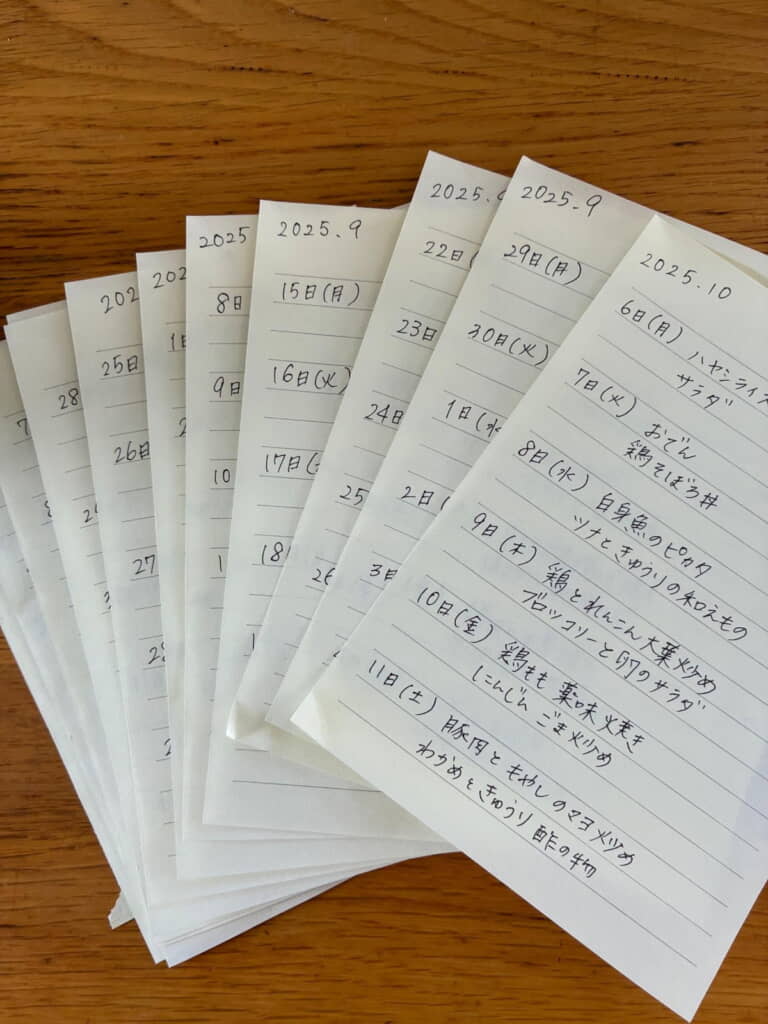 7
28
8
202
25日
26日
27
28
2
202
1日
2
2025
8日
9日
10
1
2025.9
15日(月)
16日(火)
17日(
18
1
2025.9
22日(
23日
24日
25
26
2025.9
29日(月)
30日(火)
1日(水
2日(
3日
2025.10
6日(月) ハヤシライス
サラダ
7日(火) おでん
鶏そぼろ丼
8日(水) 白身魚のピカタ
ツナときゅうりの和えもの
9日(木) 鶏とれんこん大葉炒め
ブロッコリーと卵のサラダ
10日(金) 鶏もも 薬味焼き
にんじん ごま炒め
11日(土) 豚肉ともやしのマヨ炒め
わかめときゅうり酢の物